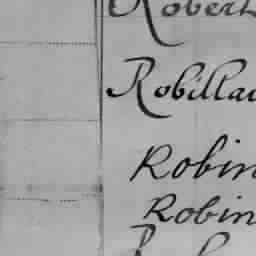 Robert
Robillar
Robin
Robin